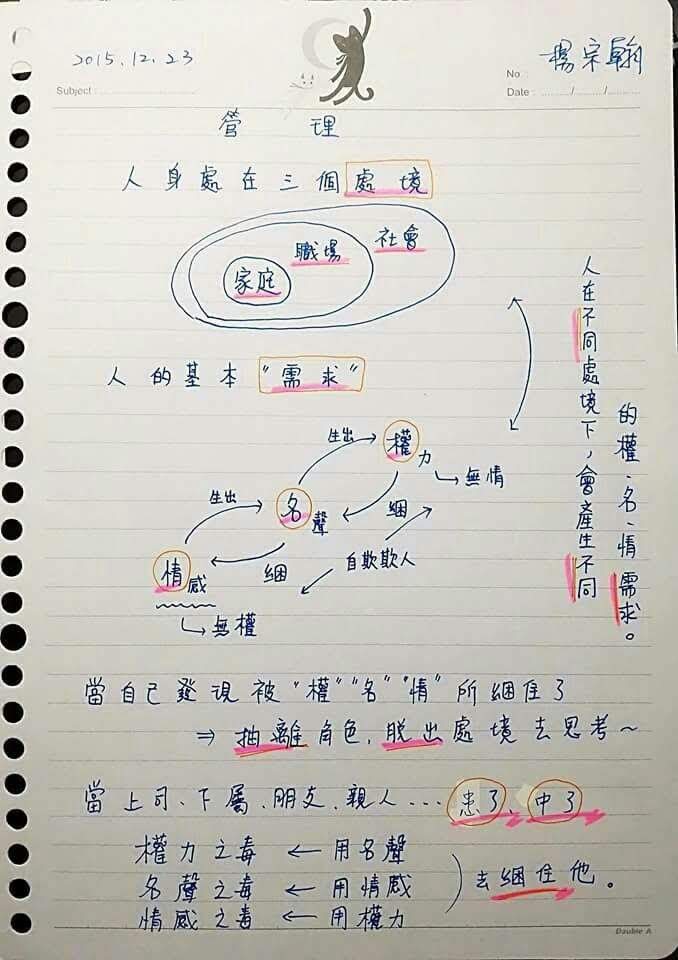 2015.12.23
楊宗翰
Subject :
No. :
Date : ......./......./.......
管理
人身處在三個處境
社會
職場
家庭
人的基本"需求"
人在不同處境下,會產生不同
的權、名、情需求。
權力
生出
無情
名聲
綑
生出
自欺欺人
情感
綑
無權
當自己發現被"權""名""情"所綑住了
⇒ 抽離角色,脫出處境去思考~
當上司、下屬、朋友、親人... 患了、中了
權力之毒 ← 用名聲
名聲之毒 ← 用情感
情感之毒 ← 用權力
去綑住他。
Double A